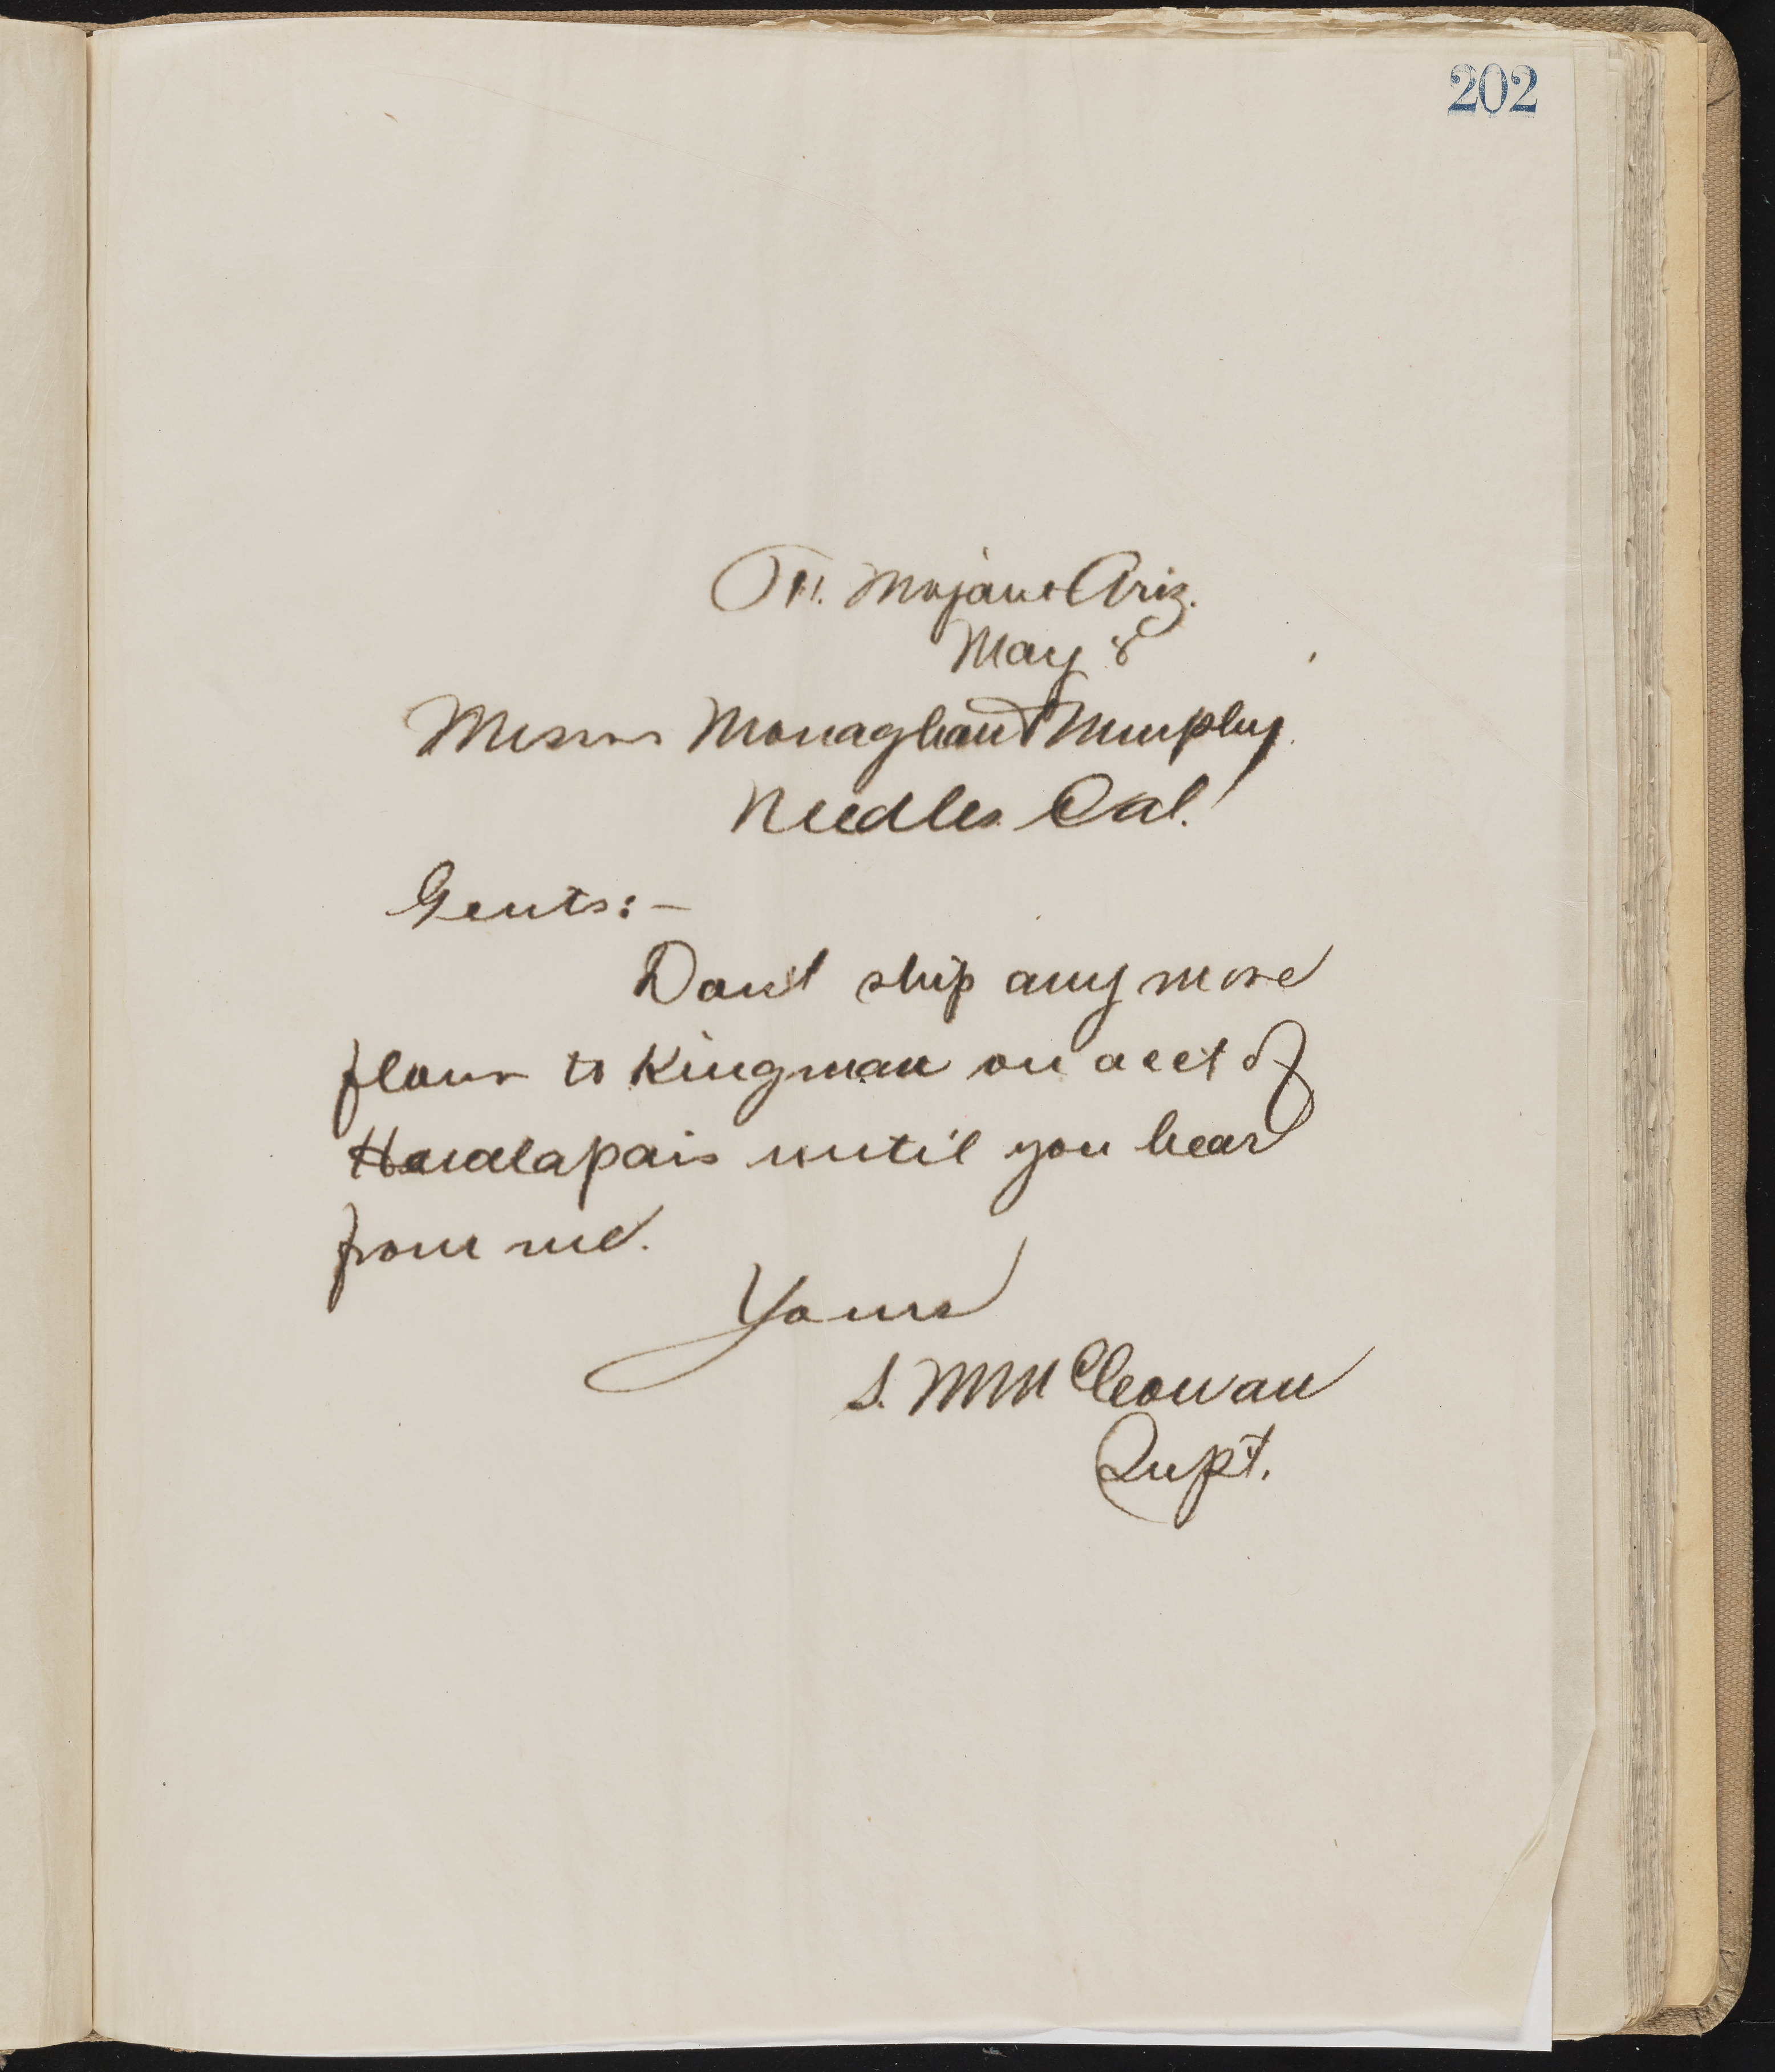 202
Ft. Mojave Ariz.
May 8
Messrs Monaghan & Murphy.
Needles Cal.
Gents:-
Don't ship any more
flour to Kingman on acct of
Hualapais until you hear
from me.
Yours
S. M. McCowan
Supt.